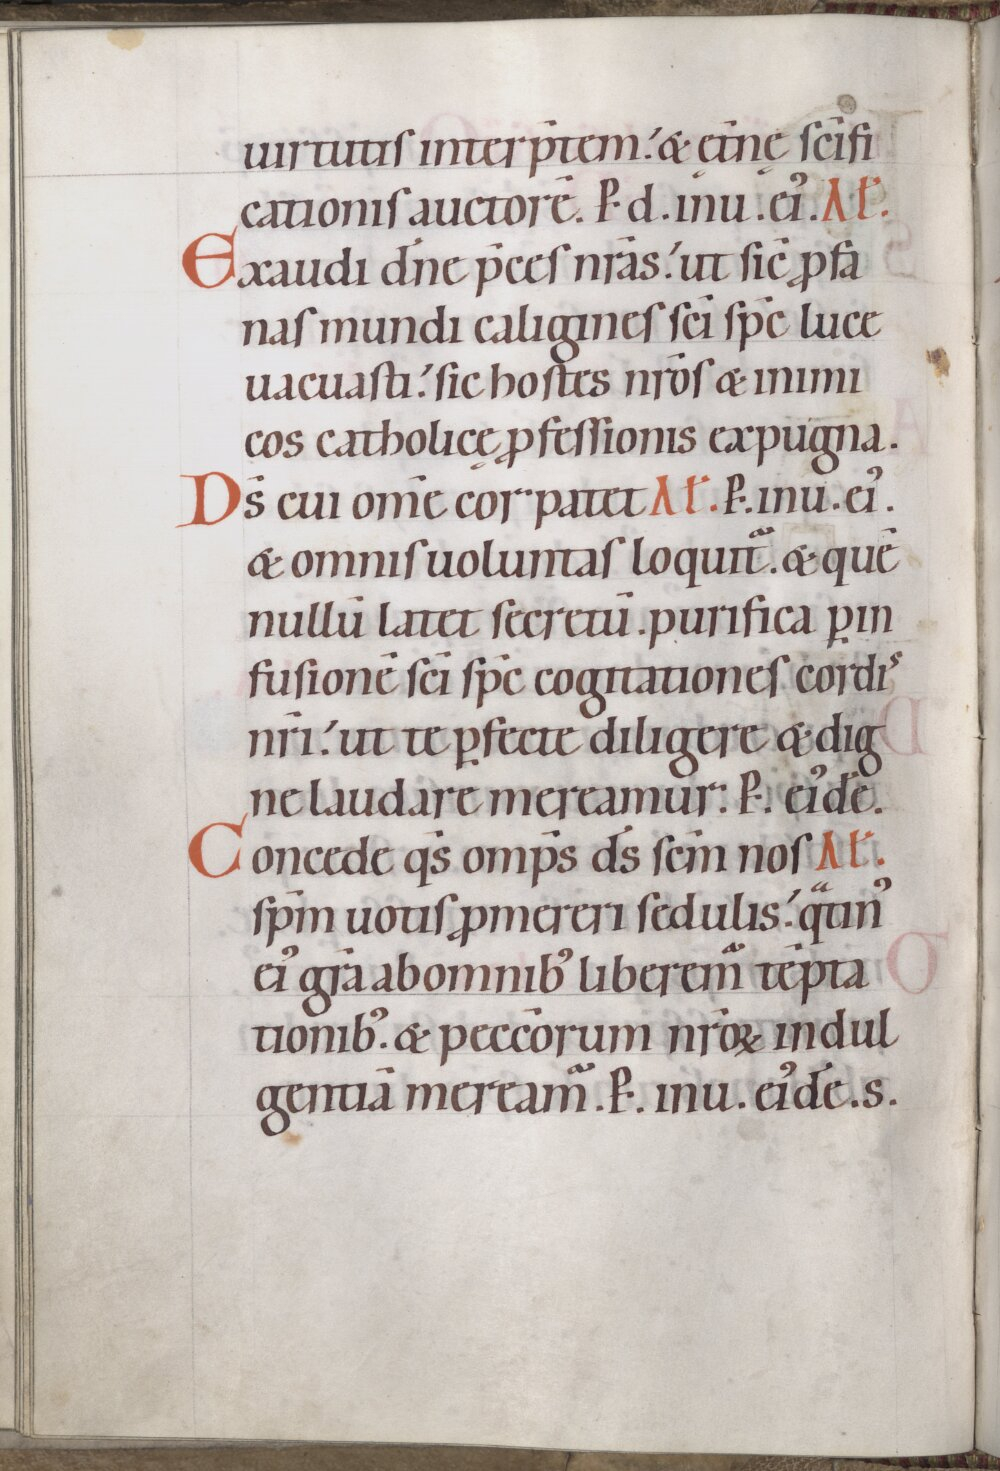 uirtutis interp̄tem.' & et̄nę sc̄ifi
cationis auctorē. P̱ d. inu. ei᾿. Al̄.
Exaudi dn̄e p̄ces nr̄as.' ut sic̄ ꝓfa
nas mundi caligines sc̄i sp̄c luce
uacuasti.' sic hostes nr̄os & inimi
cos catholicę ꝓfessionis expugna.
Ds̄ cui om̄e cor patet Al̄. P̱. inu. ei᾿.
& omnis uoluntas loquit̄. & quē
nullū latet secretū. purifica ꝑ in
fusionē sc̄i sp̄c cogitationes cordis
nr̄i.' ut te ꝑfecte diligere & dig
ne laudare mereamur: P̱. ei᾿dē.
Concede qs̄ omp̄s ds̄ sc̄m nos Al̄.
sp̄m uotis ꝓmereri sedulis.' qᷓtin᾿
ei᾿ gr̄a ab omnib᾿ liberem̄ tēpta
tionib᾿. & peccōrum nr̄oꝝ indul
gentiā meream̄. P̱. inu. ei᾿dē. s.